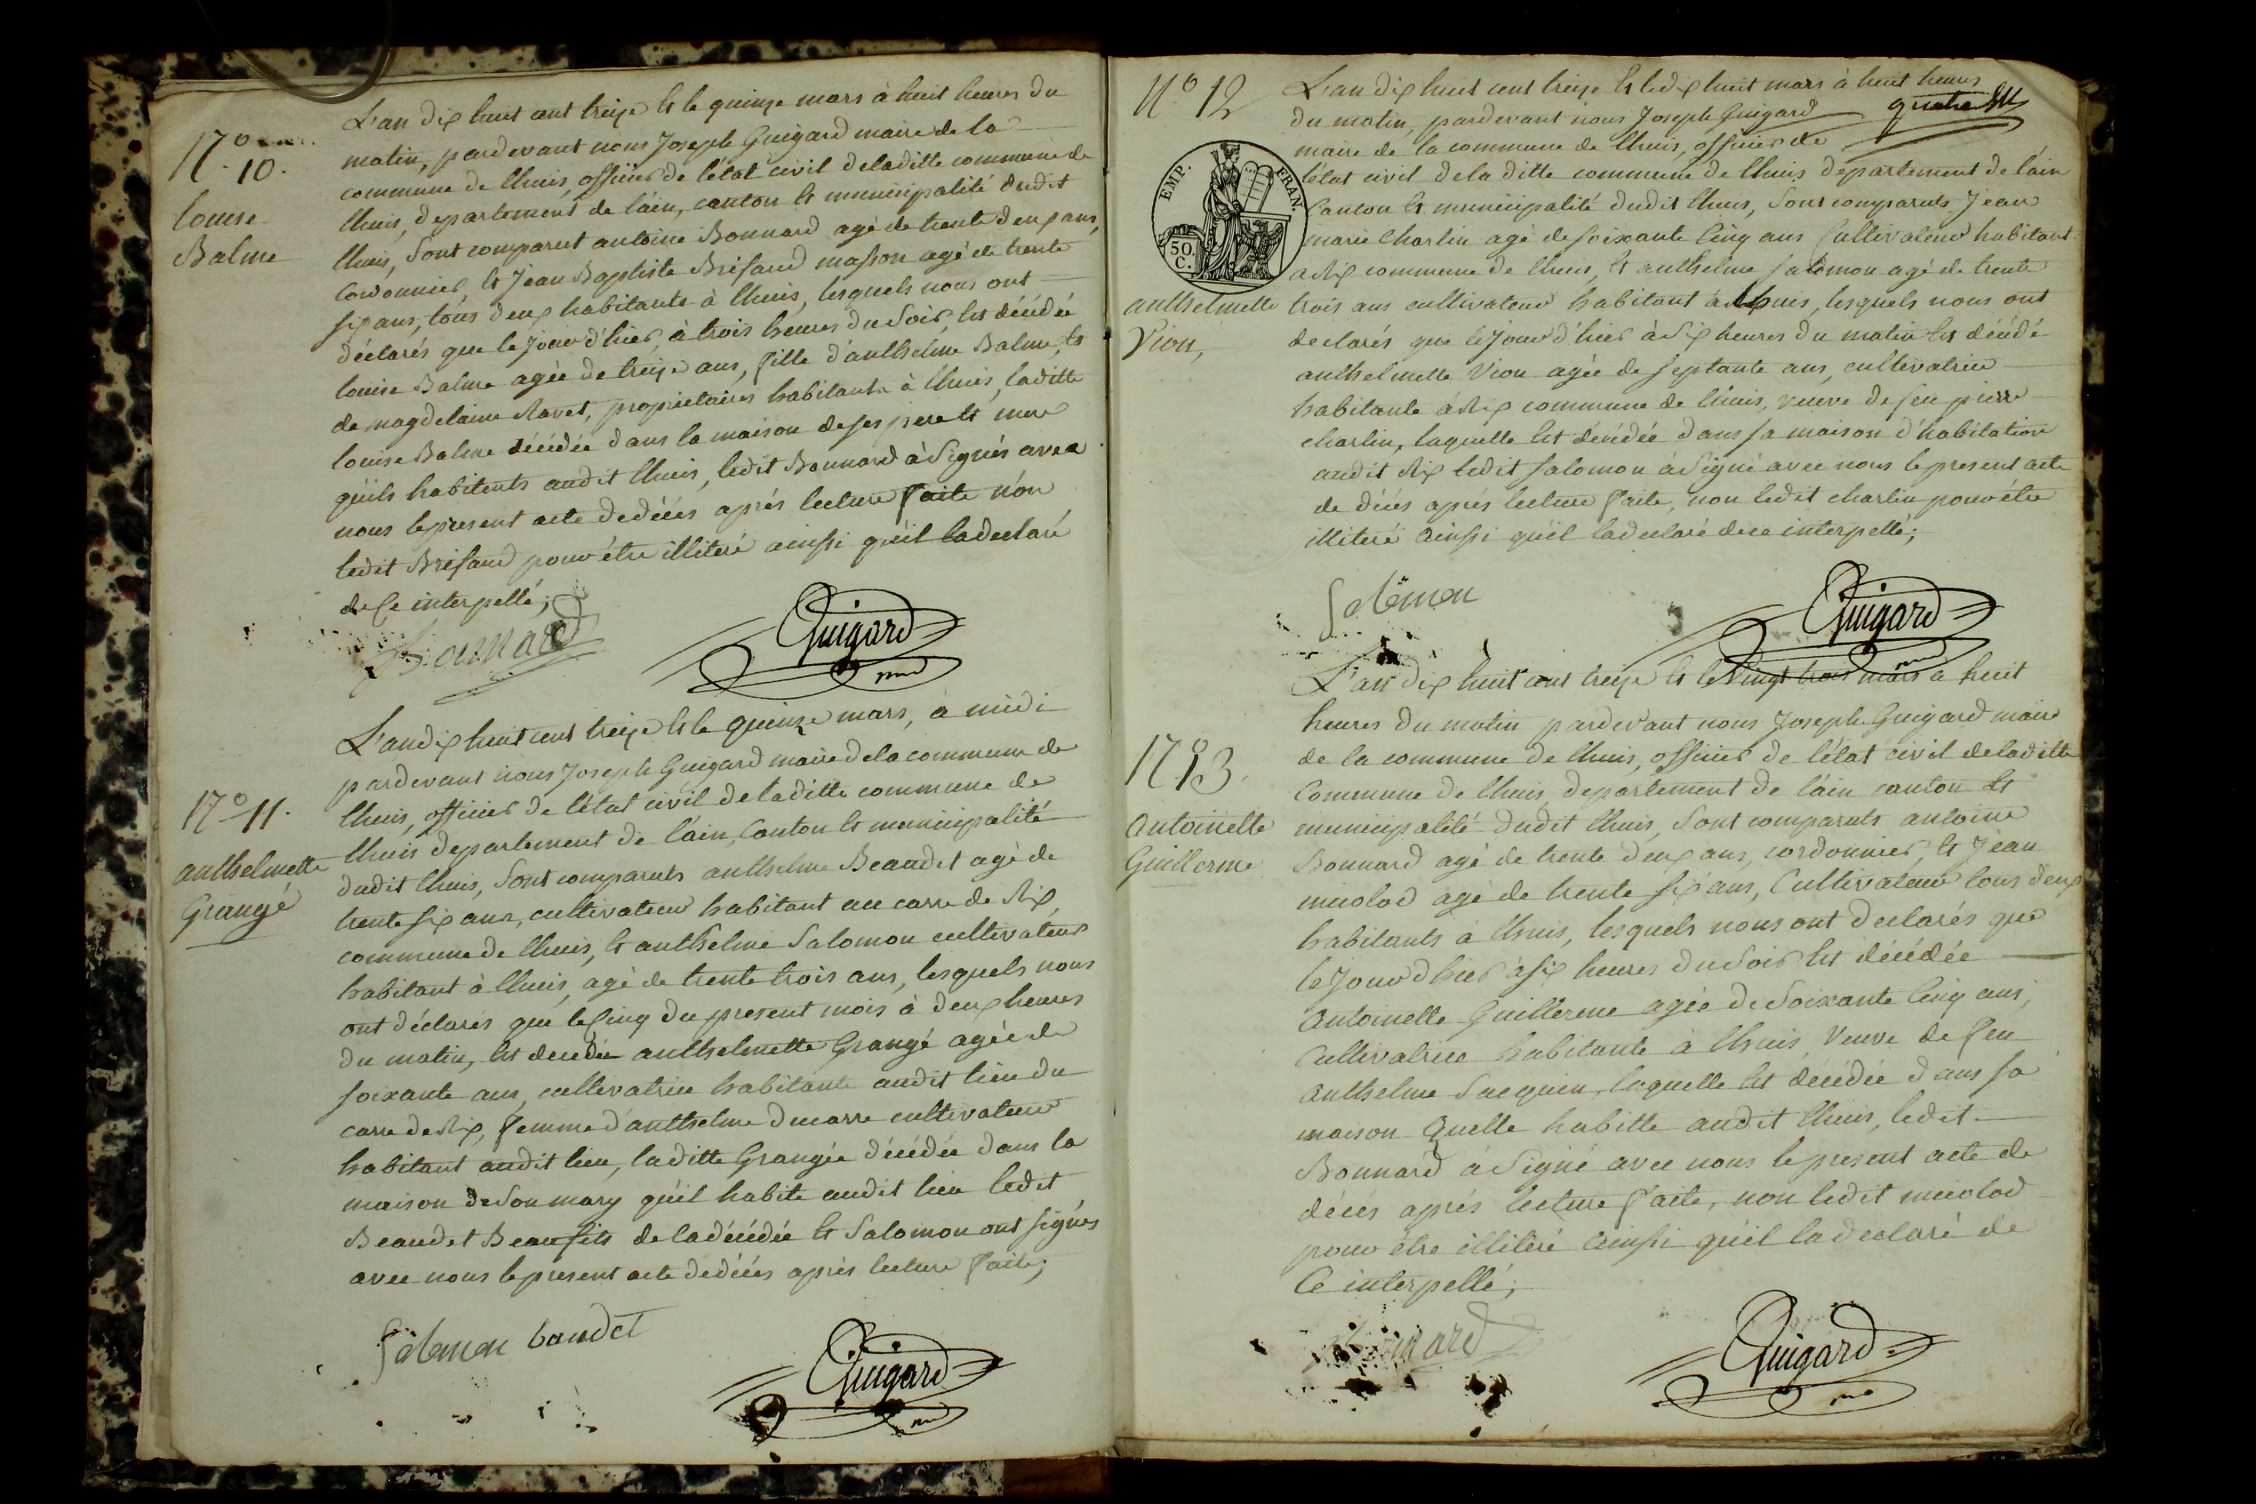 N.° 10.
Louise
Balme
L'an dix huit cent treize et le quinze mars à huit heures du
matin, pardevant nous Joseph Guigard maire de la
commune de Lhuis, officier de l'état civil de laditte commune de
Lhuis, departement de l'ain, canton et municipalité dudit
Lhuis, Sont comparut antoine Bonnard agé de trente deux ans,
Cordonnier, et Jean Baptiste Brifaud masson agé de trente
six ans, tous deux habitants à Lhuis, lesquels nous ont
déclarés que le jour d'hier, à trois heures du Soir, est décédée
Louise Balme agée de treize ans, fille d'anthelme Balme, et
de magdelaine Ravet, propriétaires habitants à Lhuis, laditte
Louise Balme décédée dans la maison de ses pere et mere
qu'ils habitents audit Lhuis, ledit Bonnard à Signés avec
nous le present acte de décés aprés lecture faite non
ledit Brifaud pour être illiteré ainsi qu'il la declaré
de Ce interpellé;
Bonnard
Guigard
N.° 11.
anthelmette
Grangé
L'an dix huit cent treize et le quinze mars, à midi
pardevant nous Joseph Guigard maire de la commune de
Lhuis, officier de l'état civil de laditte commune de
Lhuis departement de l'ain, Canton et municipalité
dudit Lhuis, Sont comparuts anthelme Beaudet agé de
trente six ans, cultivateur habitant au carre de Rix,
commune de Lhuis, et anthelme Salomon cultivateur
habitant à Lhuis, agé de trente trois ans, lesquels nous
ont déclarés que le Cinq du present mois à deux heures
du matin, est decedée anthelmette Grangé agée de
soixante ans, cultivatrice habitante audit lieu du
carre de Rix, femme d'anthelme ducarre cultivateur
habitant audit lieu, laditte Grangée décédée dans la
maison de Son mary qu'il habite audit lieu ledit
Beaudet Beaufils de la décédée et Salomon ont signés
avec nous le present acte de décés aprés lecture faite;
Salomon baudet
Guigard
N.° 12
quatre
EMP. FRAN.
50 C.
anthelmette
Vion,
L'an dix huit cent treize et le dix huit mars à huit heures
du matin, pardevant nous Joseph Guigard
maire de la commune de Lhuis, officier de
l'état civil de la ditte commune de Lhuis departement de l'ain
Canton et municipalité dudit Lhuis, Sont comparuts Jean
marie Charlin agé de soixante Cinq ans Cultivateur habitant
a Rix commune de Lhuis, et anthelme Salomon agé de trente
trois ans cultivateur habitant à Lhuis, lesquels nous ont
declarés que le jour d'hier à Six heures du matin est décédé
anthelmette Vion agée de septante ans, cultivatrice
habitante à Rix commune de Lhuis, veuve de feu pierre
charlin, laquelle est décédée dans sa maison d'habitation
audit Rix ledit Salomon à Signé avec nous le present acte
de décés aprés lecture faite, non ledit charlin pour être
illiteré ainsi qu'il la declaré de ce interpellé;
Salomon
Guigard
N.° 13.
Antoinette
Guillerme
L'an dix huit cent treize et le Vingt trois mars à huit
heures du matin pardevant nous Joseph Guigard maire
de la commune de Lhuis, officier de l'état civil de laditte
Commune de Lhuis, departement de l'ain canton et
municipalité dudit Lhuis, Sont comparuts antoine
Bonnard agé de trente deux ans, cordonnier, et Jean
miolod agé de trente six ans, Cultivateur tous deux
habitants à Lhuis, lesquels nous ont declarés que
le jour d'hier à six heures du Soir est décédée
Antoinette Guillerme agée de Soixante Cinq ans,
Cultivatrice habitante à Lhuis, Veuve de feu
Anthelme laquelle est décédée dans sa
maison Quelle habitte audit Lhuis, ledit
Bonnard à Signé avec nous le present acte de
décés aprés lecture faite, non ledit miolod
pour être illiteré ainsi qu'il la declaré de
Ce interpellé;
Guigard